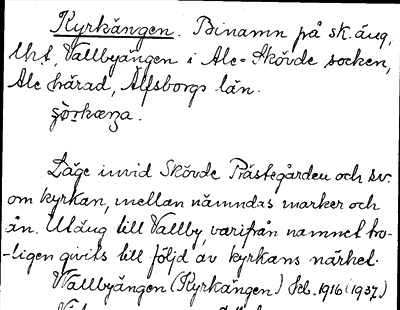 Kyrkängen. Binamn på sk. äng,
Vallbyängen i Ale-Skövde socken,
Ale härad, Älfsborgs län.
Läge invid Skövde Prästegården och sv.
om kyrkan, mellan nämndas marker och
ån. Utäng till Vallby, varifrån namnet tro-
-ligen givits till följd av kyrkans närhet.
Wallbyängen (Kyrkängen) Seb. 1916 (1937)